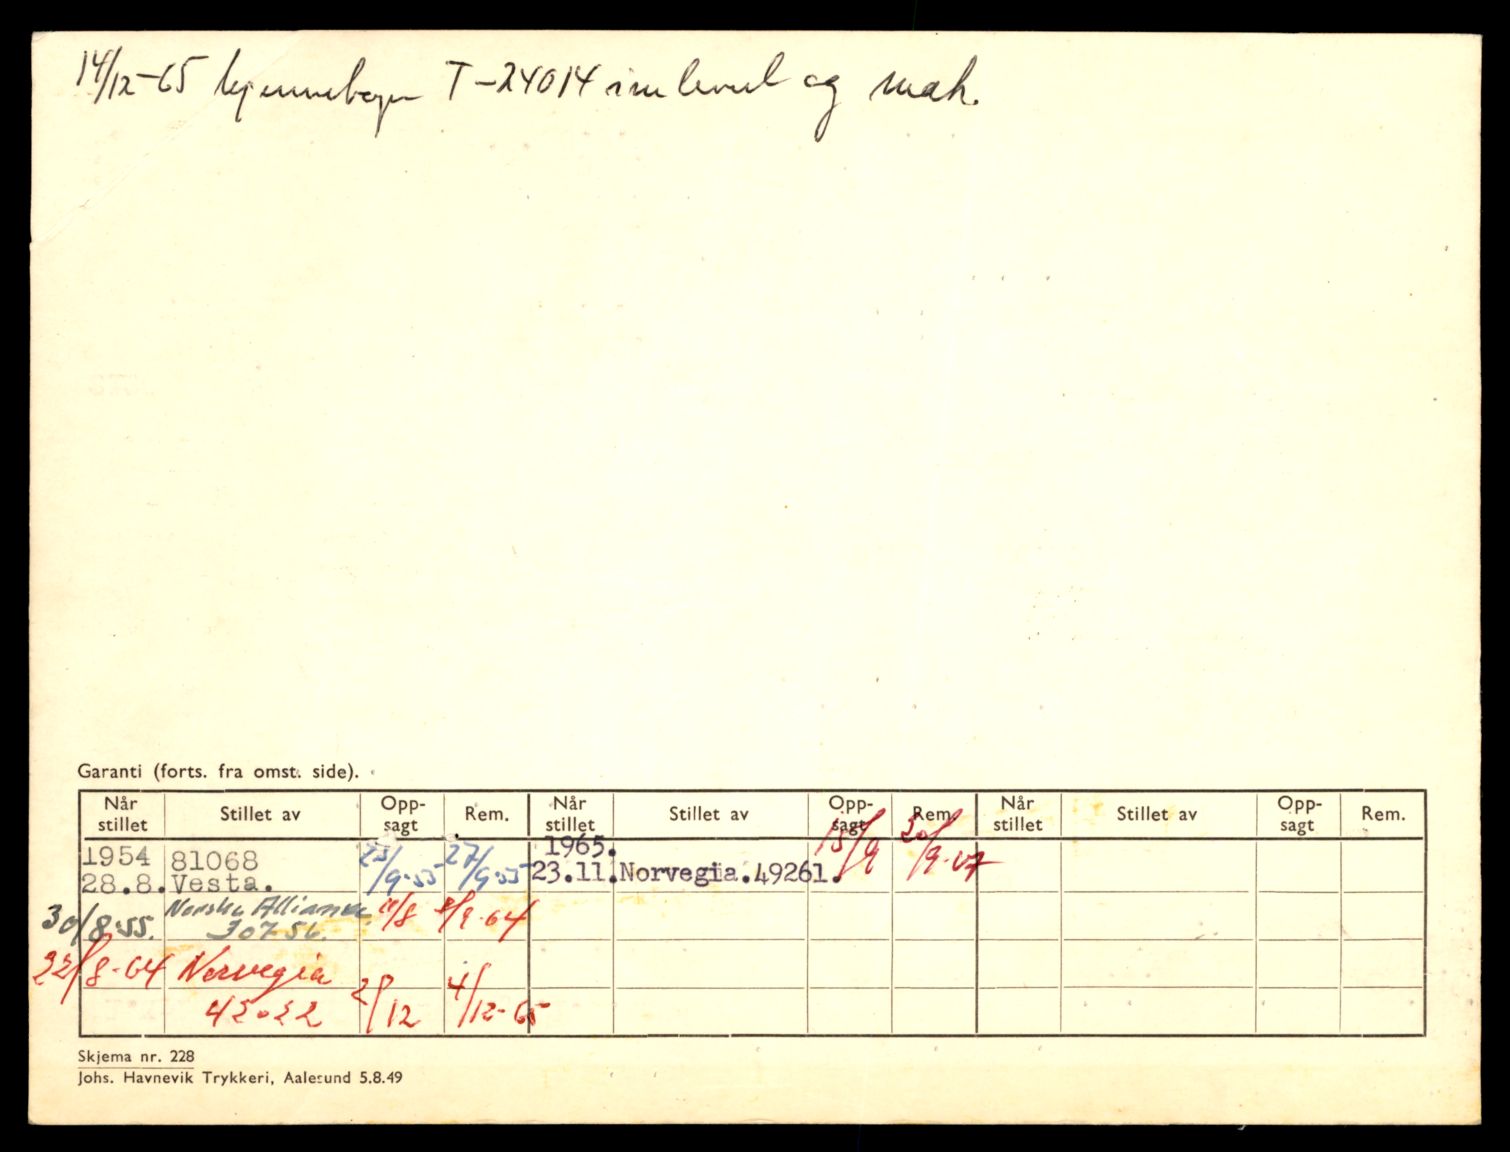 14/12-65 kjennebogen T-24014 innlevert og mak.
Garanti (forts. fra omst. side).
Når stillet Stillet av Opp-sagt Rem. Når stillet Stillet av Opp-sagt Rem. Når stillet Stillet av Opp-sagt Rem.
1954 81068 1965.
28.8. Vesta. 23/9-55 27/9-55 23.11. Norvegia. 49261. 15/9 20/9-67
30/8-55. Norske Alliance 11/8 8/9-64
30756.
22/8-64 Norvegia
2/12 4/12-65
Skjema nr. 228
Johs. Havnevik Trykkeri, Aalesund 5.8.49